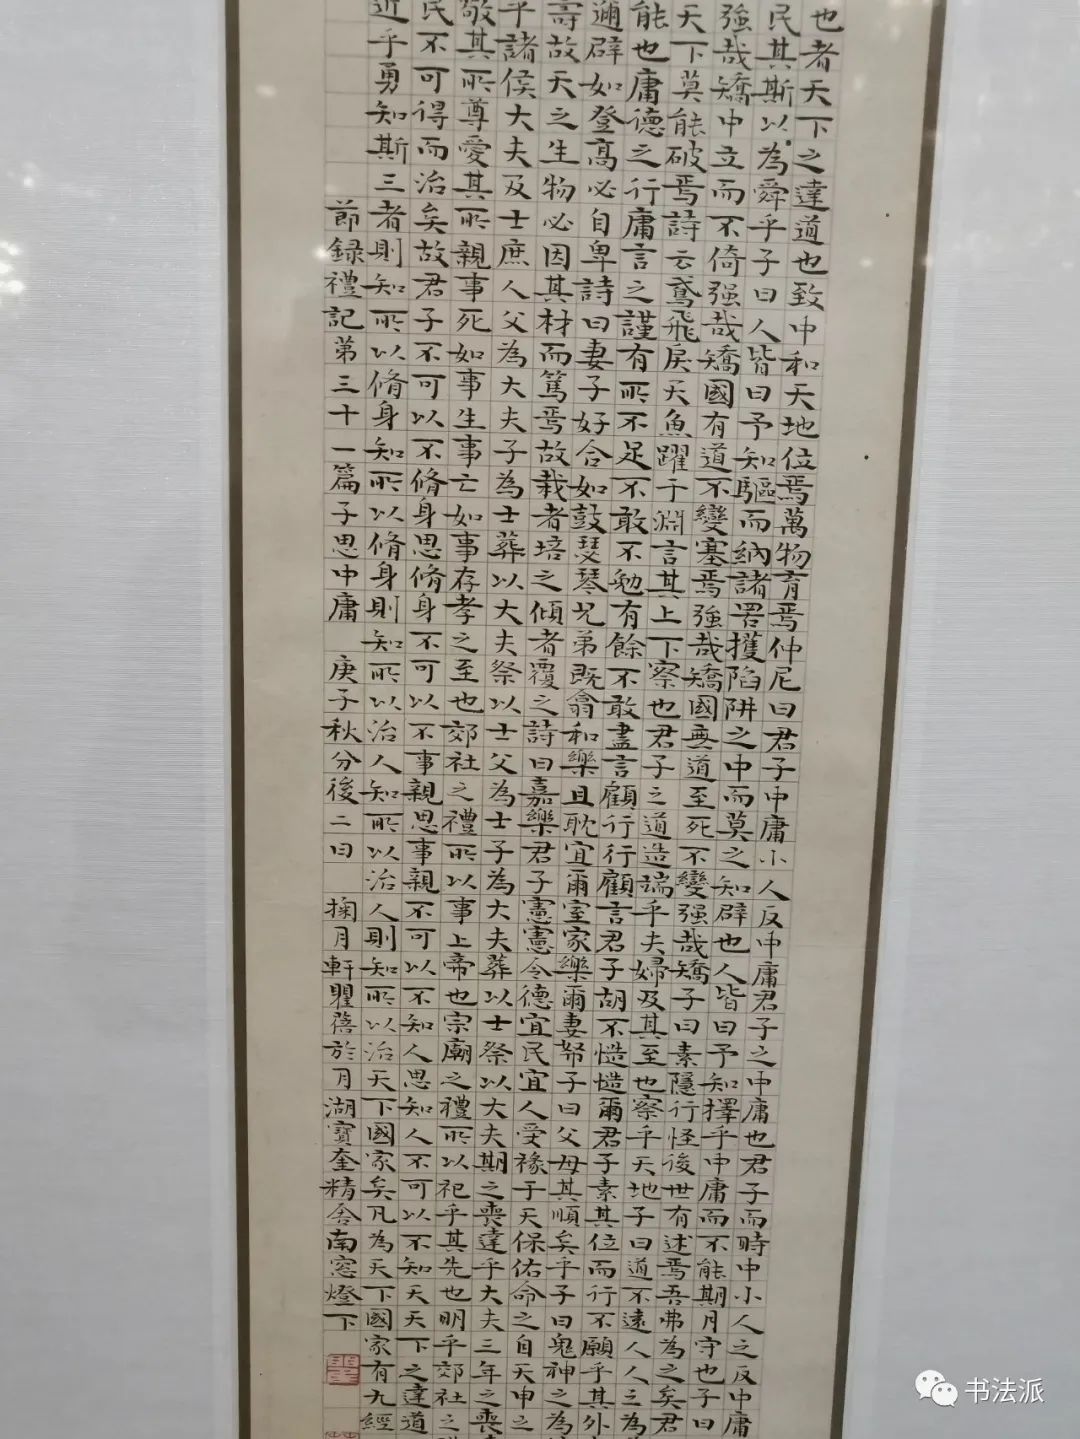 也者天下之達道也致中和天地位焉萬物育焉仲尼曰君子中庸小人反中庸君子之中庸也君子而時中小人之反中庸
民其斯以為舜乎子曰人皆曰予知驅而納諸罟擭陷阱之中而莫之知辟也人皆曰予知擇乎中庸而不能期月守也子曰
強哉矯中立而不倚强哉矯國有道不變塞焉強哉矯國無道至死不變强哉矯子曰素隱行怪後世有述焉吾弗為之矣君
天下莫能破焉詩云鳶飛戾天魚躍于淵言其上下察也君子之道造端乎夫婦及其至也察乎天地子曰道不遠人人之為
能也庸德之行庸言之謹有所不足不敢不勉有餘不敢盡言顧行行顧言君子胡不慥慥爾君子素其位而行不願乎其外
邇辟如登高必自卑詩曰妻子好合如鼓瑟琴兄弟既翕和樂且耽宜爾室家樂爾妻帑子曰父母其順矣乎子曰鬼神之為
壽故天之生物必因其材而篤焉故栽者培之傾者覆之詩曰嘉樂君子憲憲令德宜民宜人受祿于天保佑命之自天申之
乎諸侯大夫及士庶人父為大夫子為士葬以大夫祭以士父為士子為大夫葬以士祭以大夫期之喪達乎大夫三年之喪
敬其所尊愛其所親事死如事生事亡如事存孝之至也郊社之禮所以事上帝也宗廟之禮所以祀乎其先也明乎郊社之
民不可得而治矣故君子不可以不脩身思脩身不可以不事親思事親不可以不知人思知人不可以不知天天下之達道
近乎勇知斯三者則知所以脩身知所以脩身則知所以治人知所以治人則知所以治天下國家矣凡為天下國家有九經
節録禮記第三十一篇子思中庸 庚子秋分後二日 掬月軒瞿蓓於月湖寶奎精舍南窓燈下
书法派